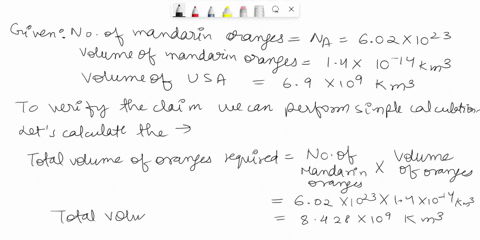 Given: No. of mandarin oranges = NA = 6.02 X 10²³
Volume of mandarin oranges = 1.4 X 10⁻¹⁴ Km³
Volume of USA = 6.9 X 10⁹ Km³
To verify the claim we can perform simple calculation
Let's calculate the →
Total volume of oranges required = No. of Mandarin oranges X Volume of oranges
= 6.02 X10²³ X 1.4 X10⁻¹⁴ Km³
Total volu = 8.428 X 10⁹ Km³